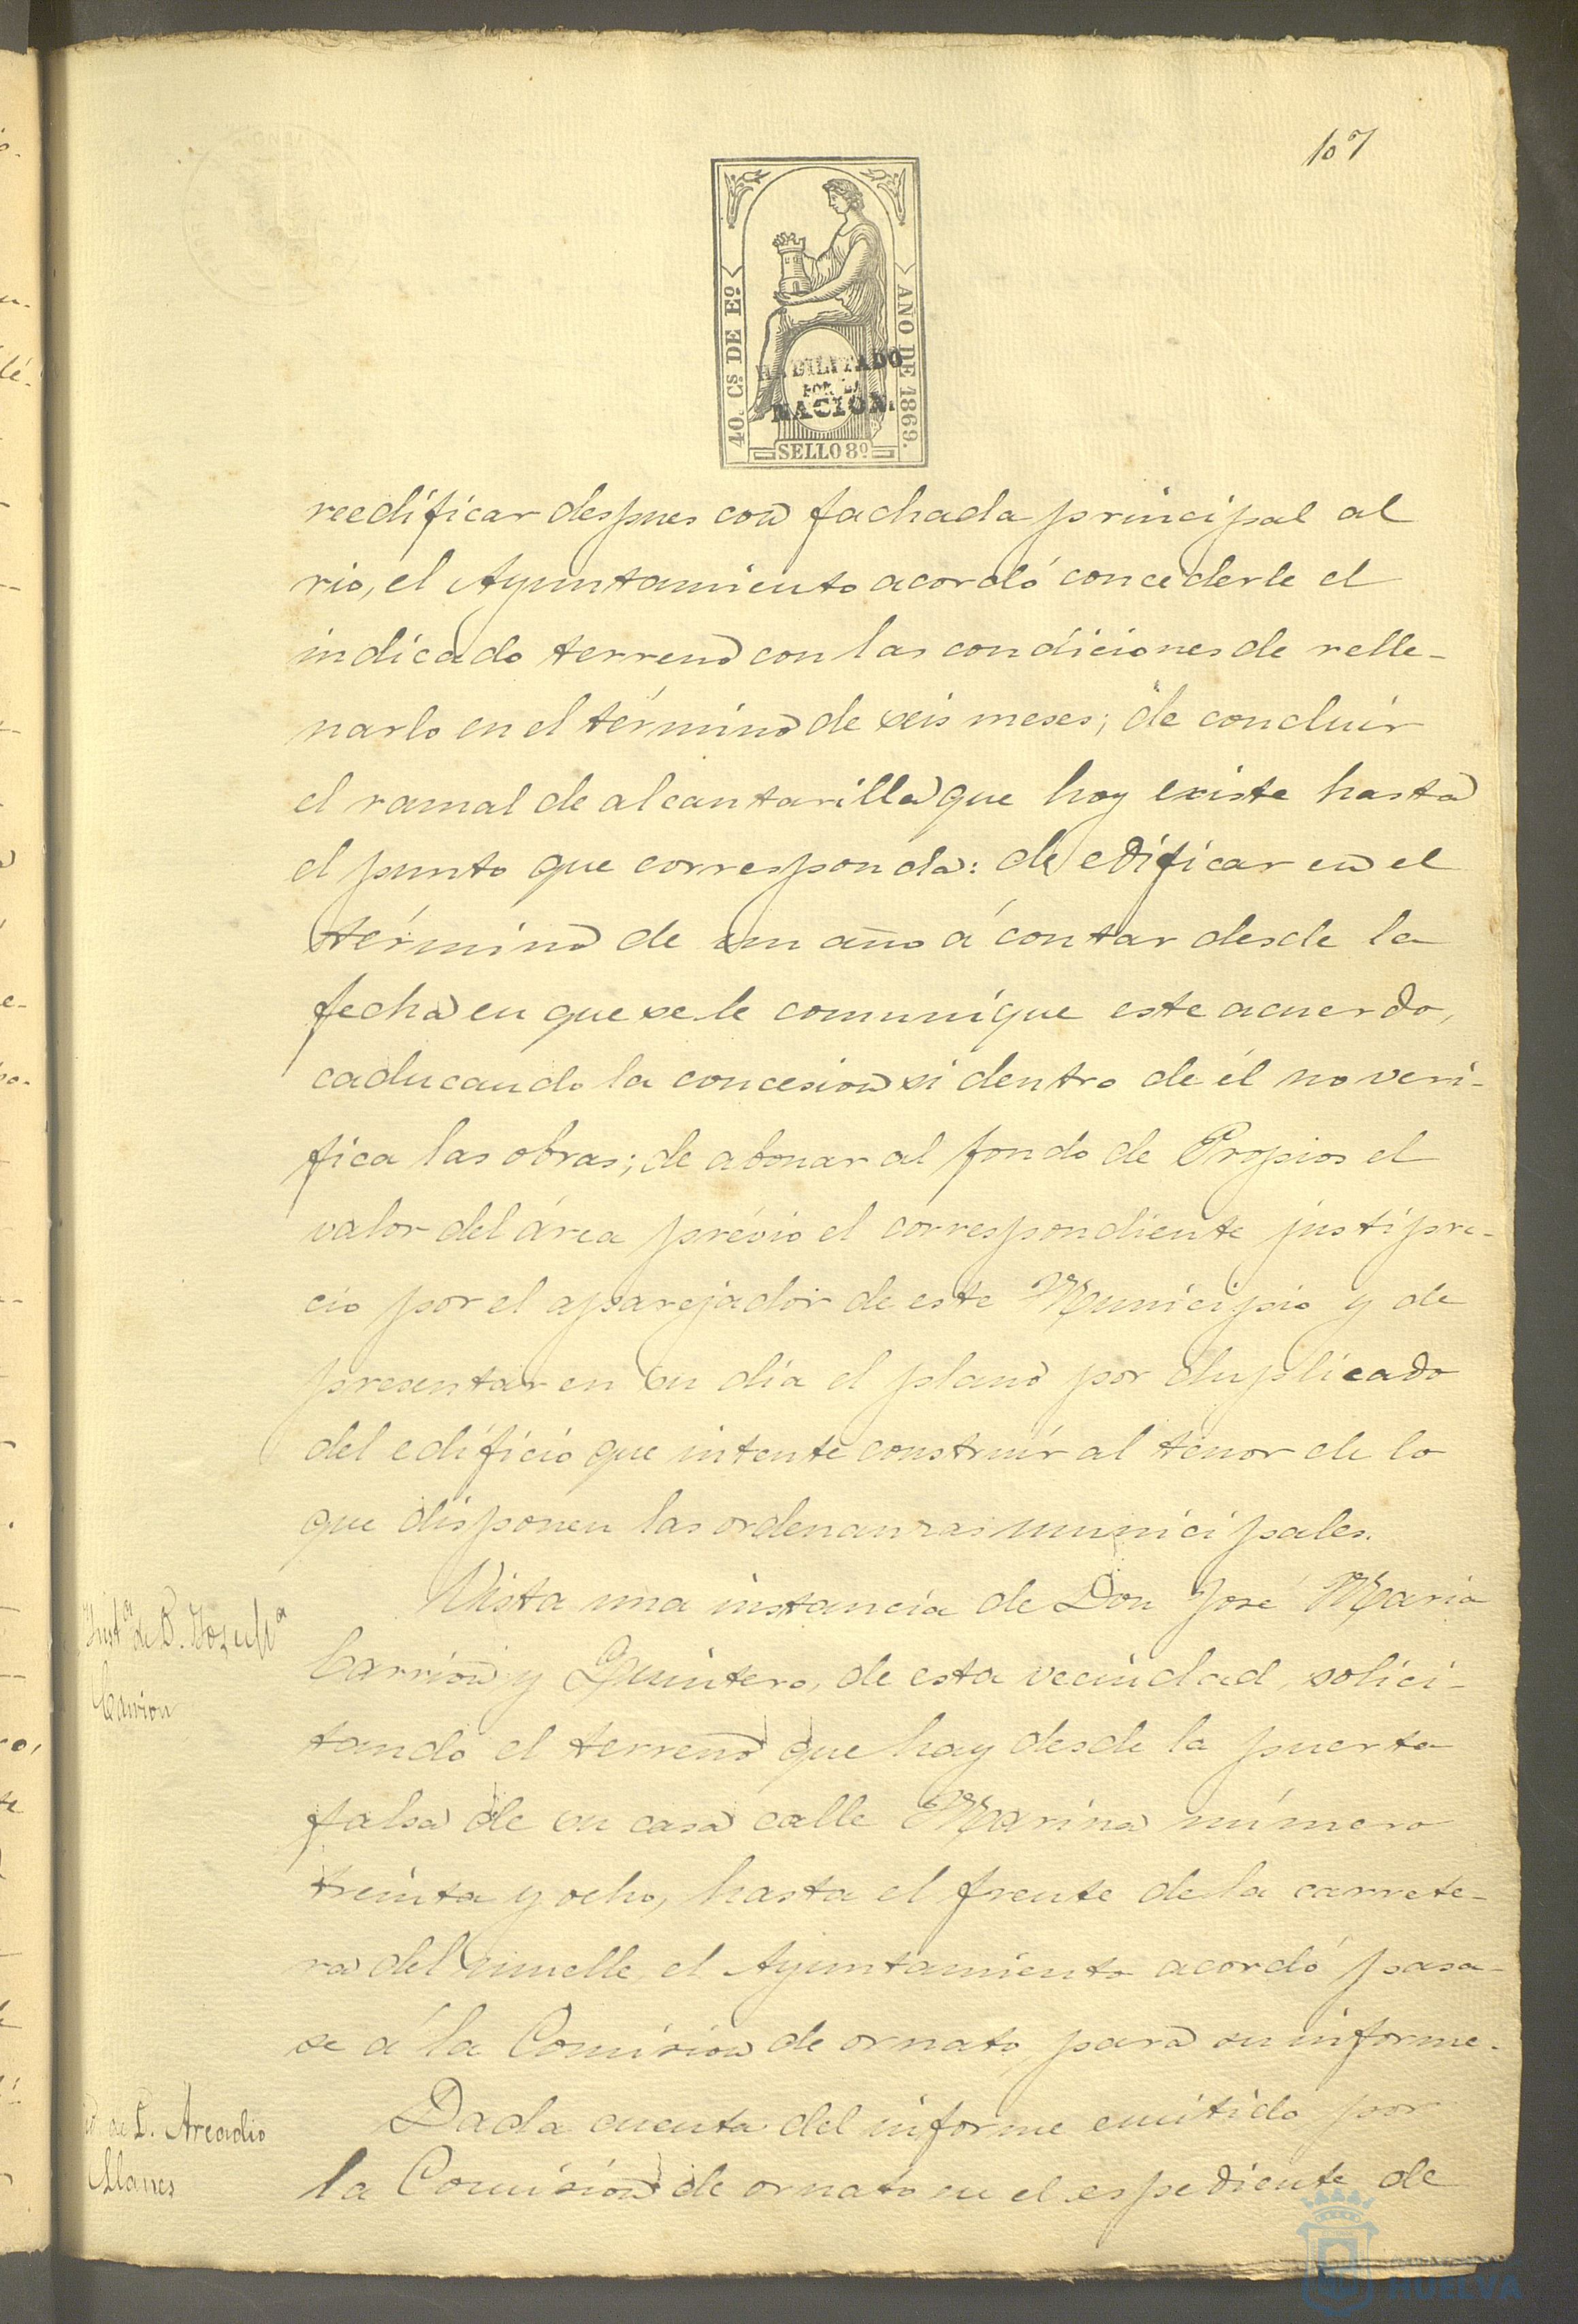 107
40. Cs DE Eo.
AÑO DE 1869.
HABILITADO
POR LA
NACION.
SELLO 8º
reedificar despues con fachada principal al
rio, el Ayuntamiento acordó concederle el
indicado terreno con las condiciones de relle-
narlo en el término de seis meses; de concluir
el ramal de alcantarilla que hoy existe hasta
el punto que corresponda: de edificar en el
término de un año á contar desde la
fecha en que se le comunique este acuerdo,
caducando la concesion si dentro de él no veri-
fica las obras; de abonar al fondo de Propios el
valor del área prévio el correspondiente justipre-
cio por el aparejador de este Municipio y de
presentar en su dia el plano por duplicado
del edificio que intente construir al tenor de lo
que disponen las ordenanzas municipales.
Insta de D. José Ma
Carrion
Vista una instancia de Don José Maria
Carrion y Quintero, de esta vecindad, solici-
tando el terreno que hay desde la puerta
falsa de su casa calle Marina número
treinta y ocho, hasta el frente de la carrete-
ra del muelle, el Ayuntamiento acordó pasa-
se á la Comision de ornato para su informe.
de D. Arcadio
Llanes
Dada cuenta del informe emitido por
la Comision de ornato en el espediente de
HUELVA